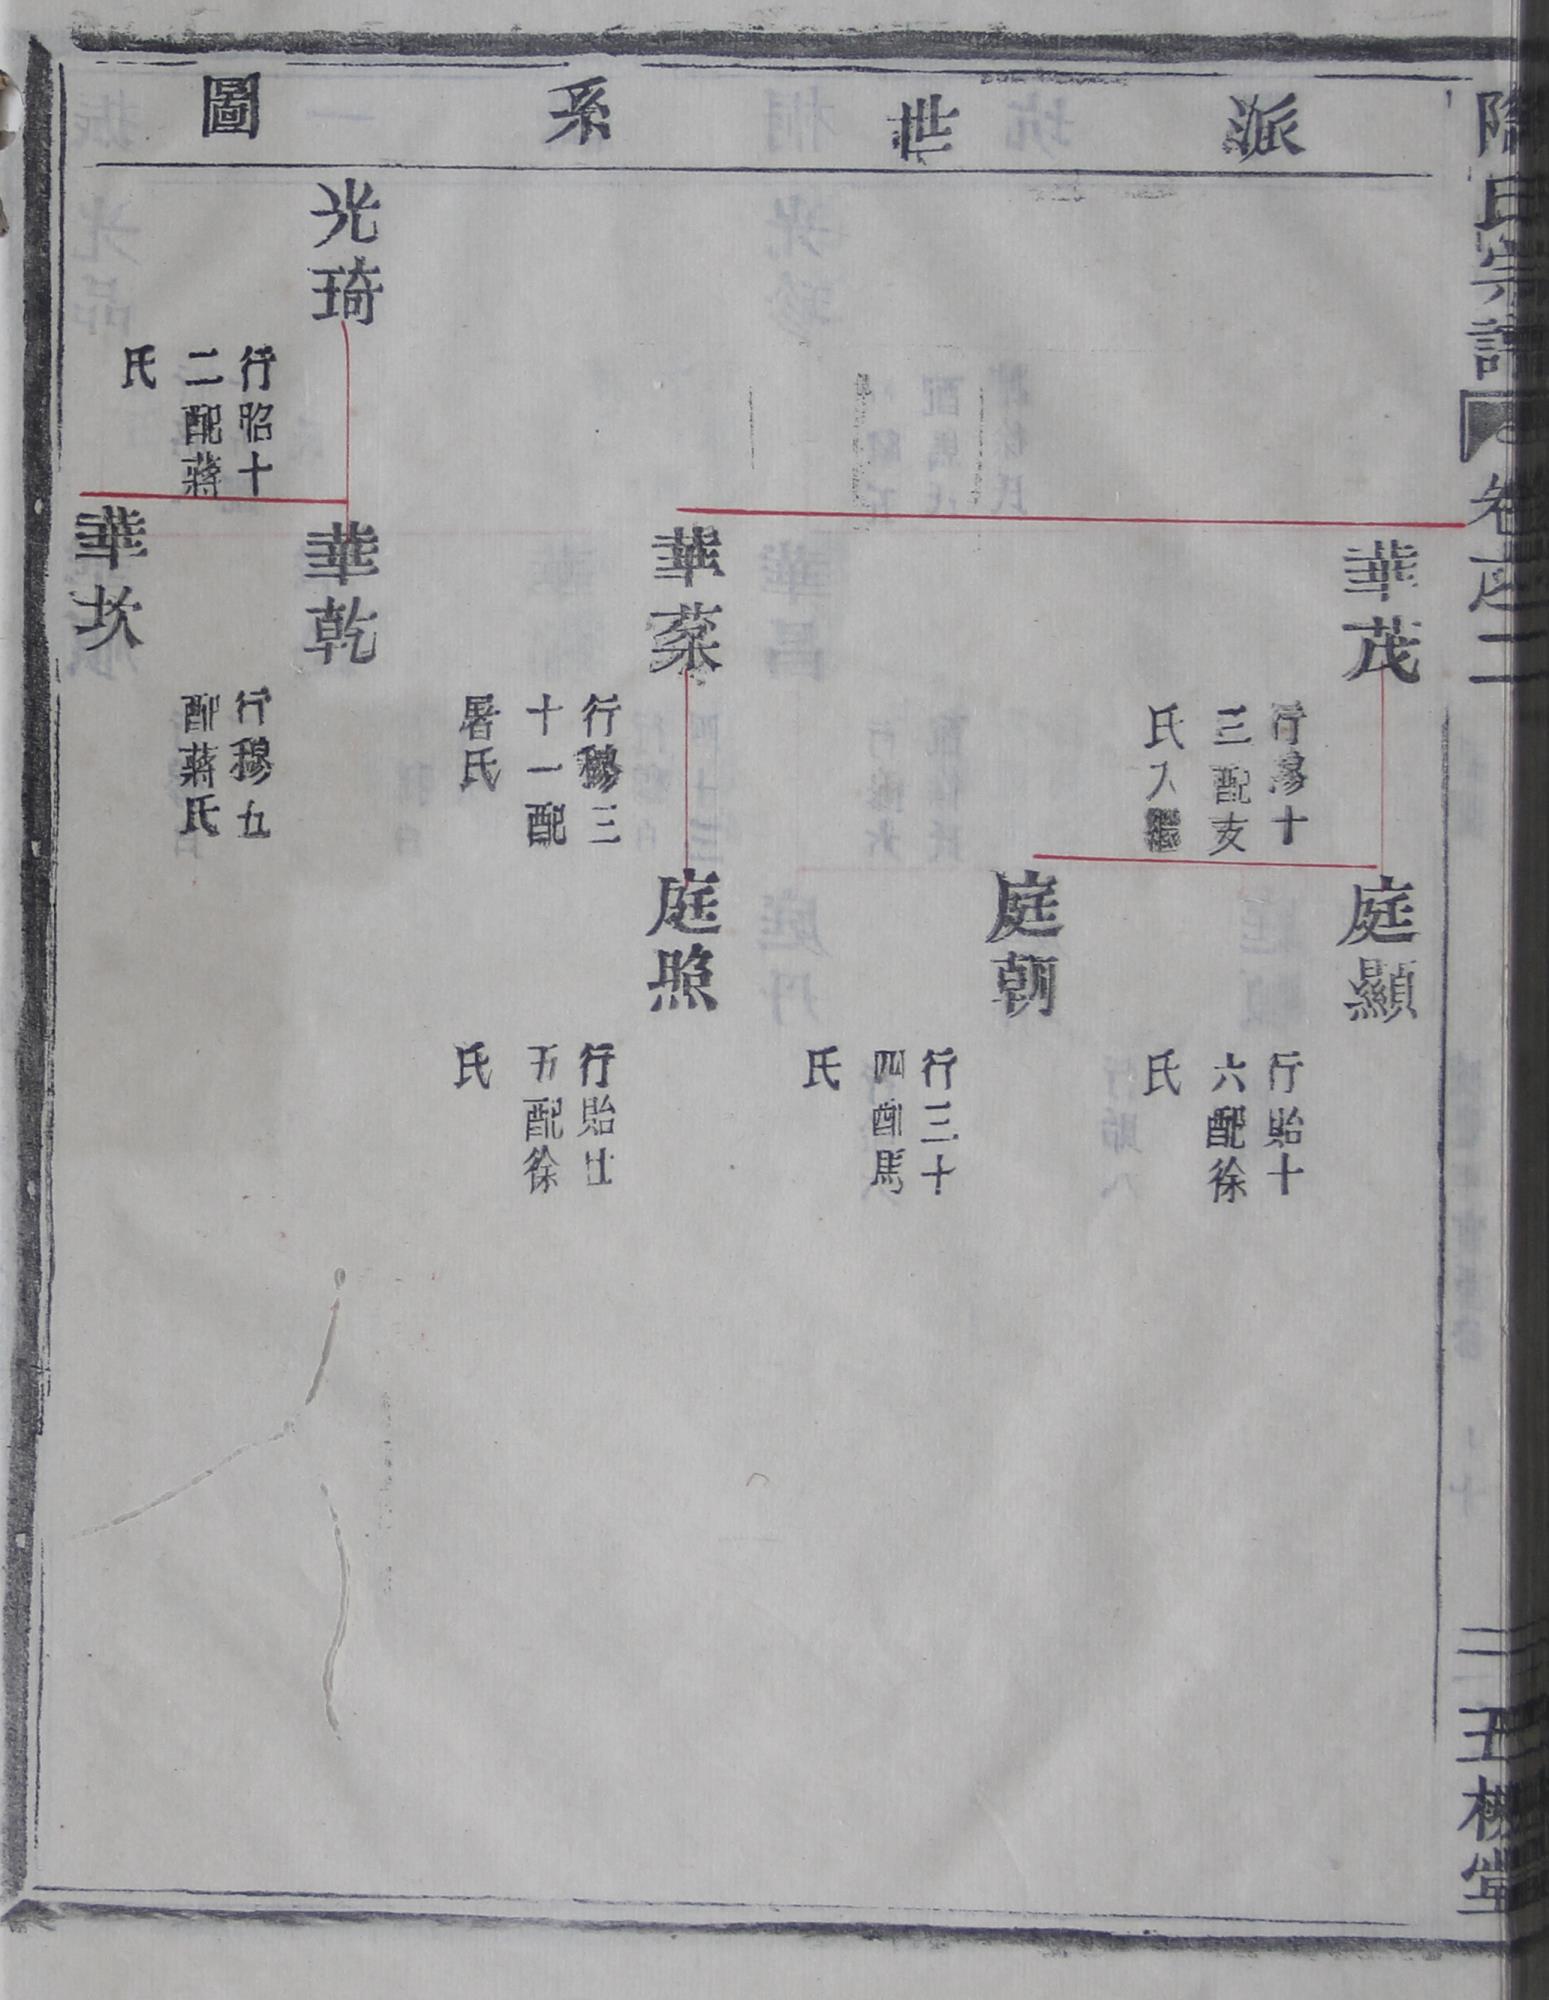 氏宗譜
卷之二
派世系圖
華茂
行穆十
三配支
氏入繼
庭顯
行貽十
六配徐
氏
庭朝
行三十
四配馬
氏
華蕖
行穆三
十一配
屠氏
庭照
行貽廿
五配徐
氏
光琦
行昭十
二配蔣
氏
華乾
行穆九
配蔣氏
華坎